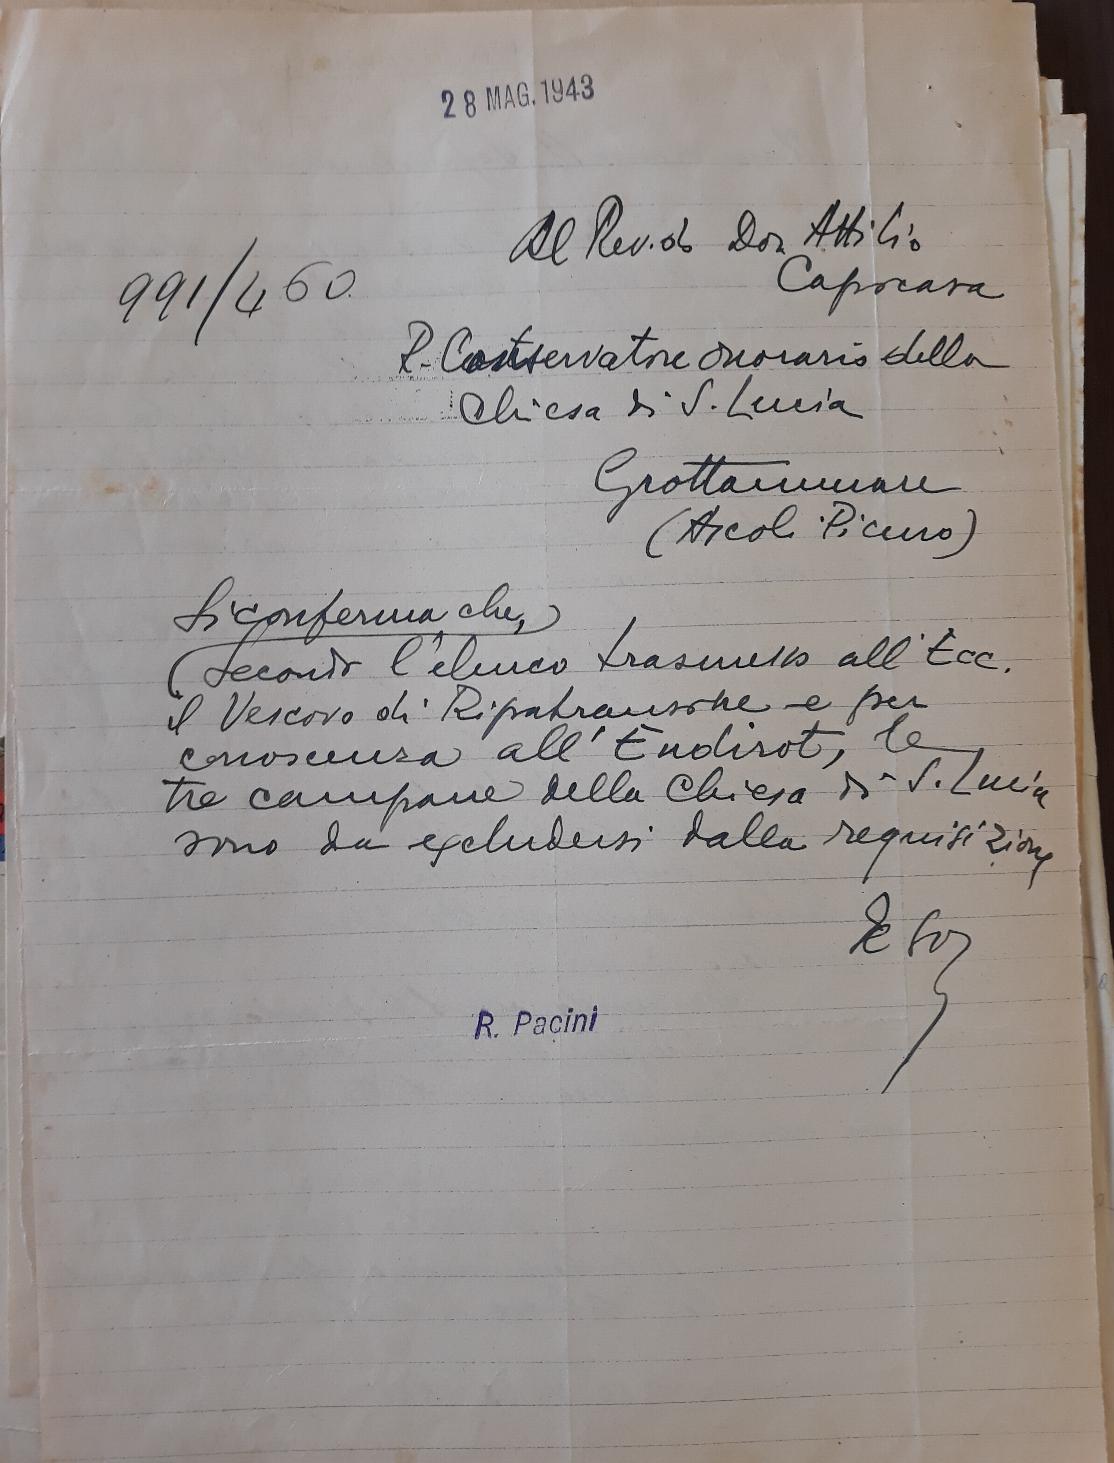 28 MAG. 1943
Al Rev.do Don Attilio
Capocasa
991/460
R. Conservatore onorario della
Chiesa di S. Lucia
Grottammare
(Ascoli Piceno)
Si conferma che,
secondo l'elenco trasmesso all'Ecc.
il Vescovo di Ripatransone e per
conoscenza all'Endirot, le
tre campane della Chiesa di S. Lucia
sono da escludersi dalla requisizione
R. Pacini